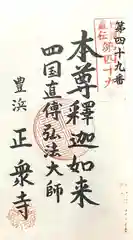 第四十九番
本尊釋迦如来
四国直傳弘法大師
豊浜
正衆寺